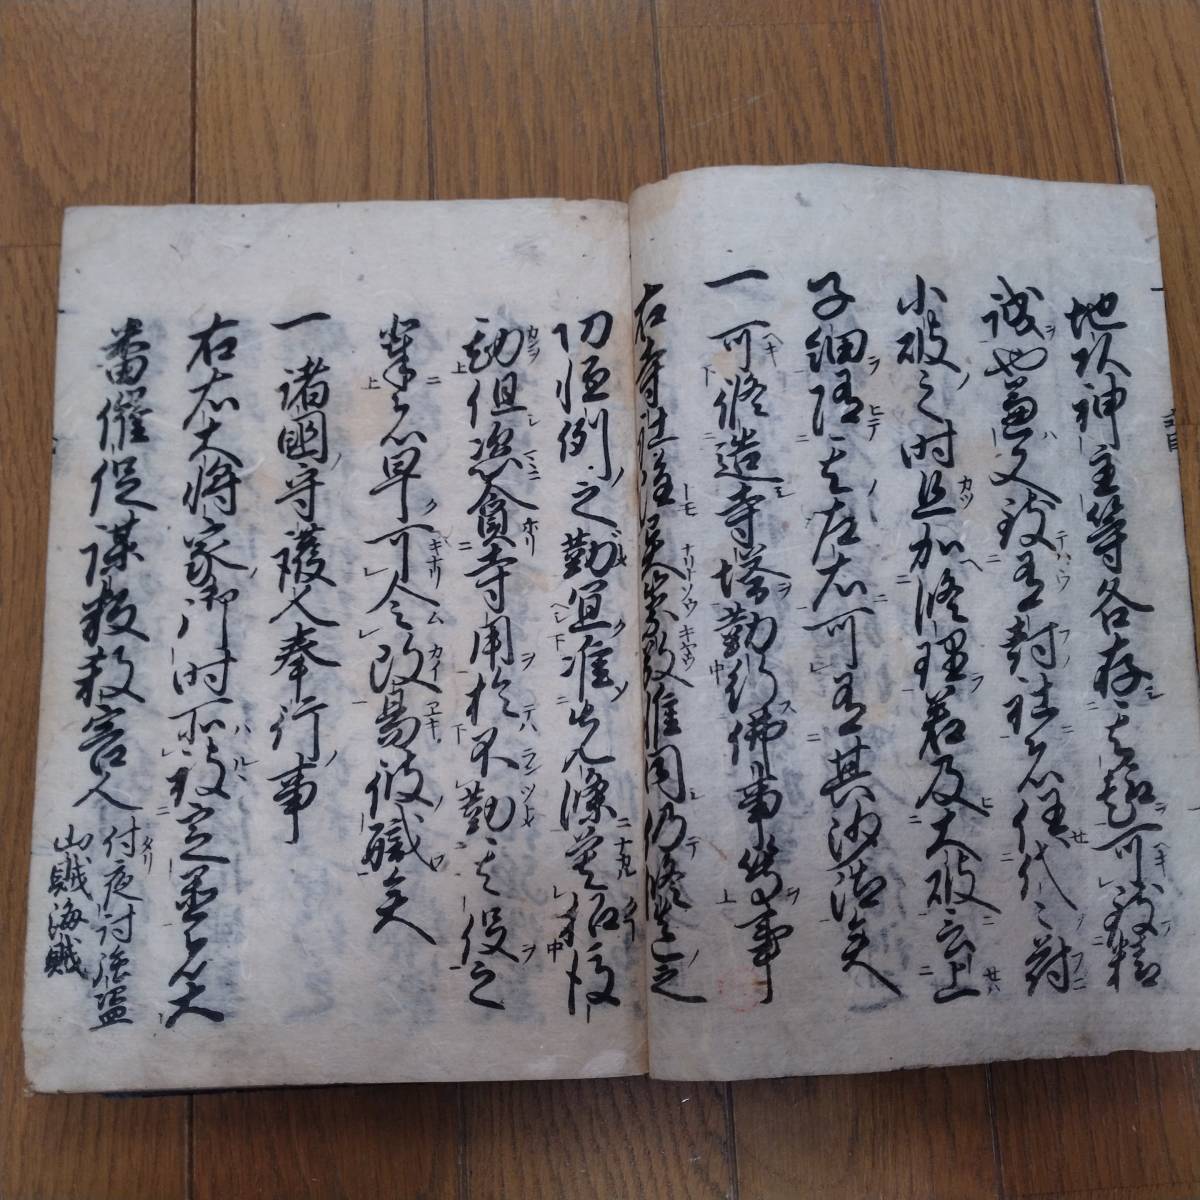 地頭神主等各存其趣可致精
誠也兼又致有封社者任代々符
小破之时且加修理若及大破言上
子細随其左右可有其沙汰矣
一可修造寺塔勤行佛事等事
右寺社雖異崇敬惟同仍修造之
功恒例之勤宜准先條莫招後
勘但恣貪寺用於不勤其役之
輩者早可令改易彼職矣
一諸國守護人奉行事
右右大将家御时所被定置者大
番催促謀叛殺害人
付夜討強盗
山賊海賊